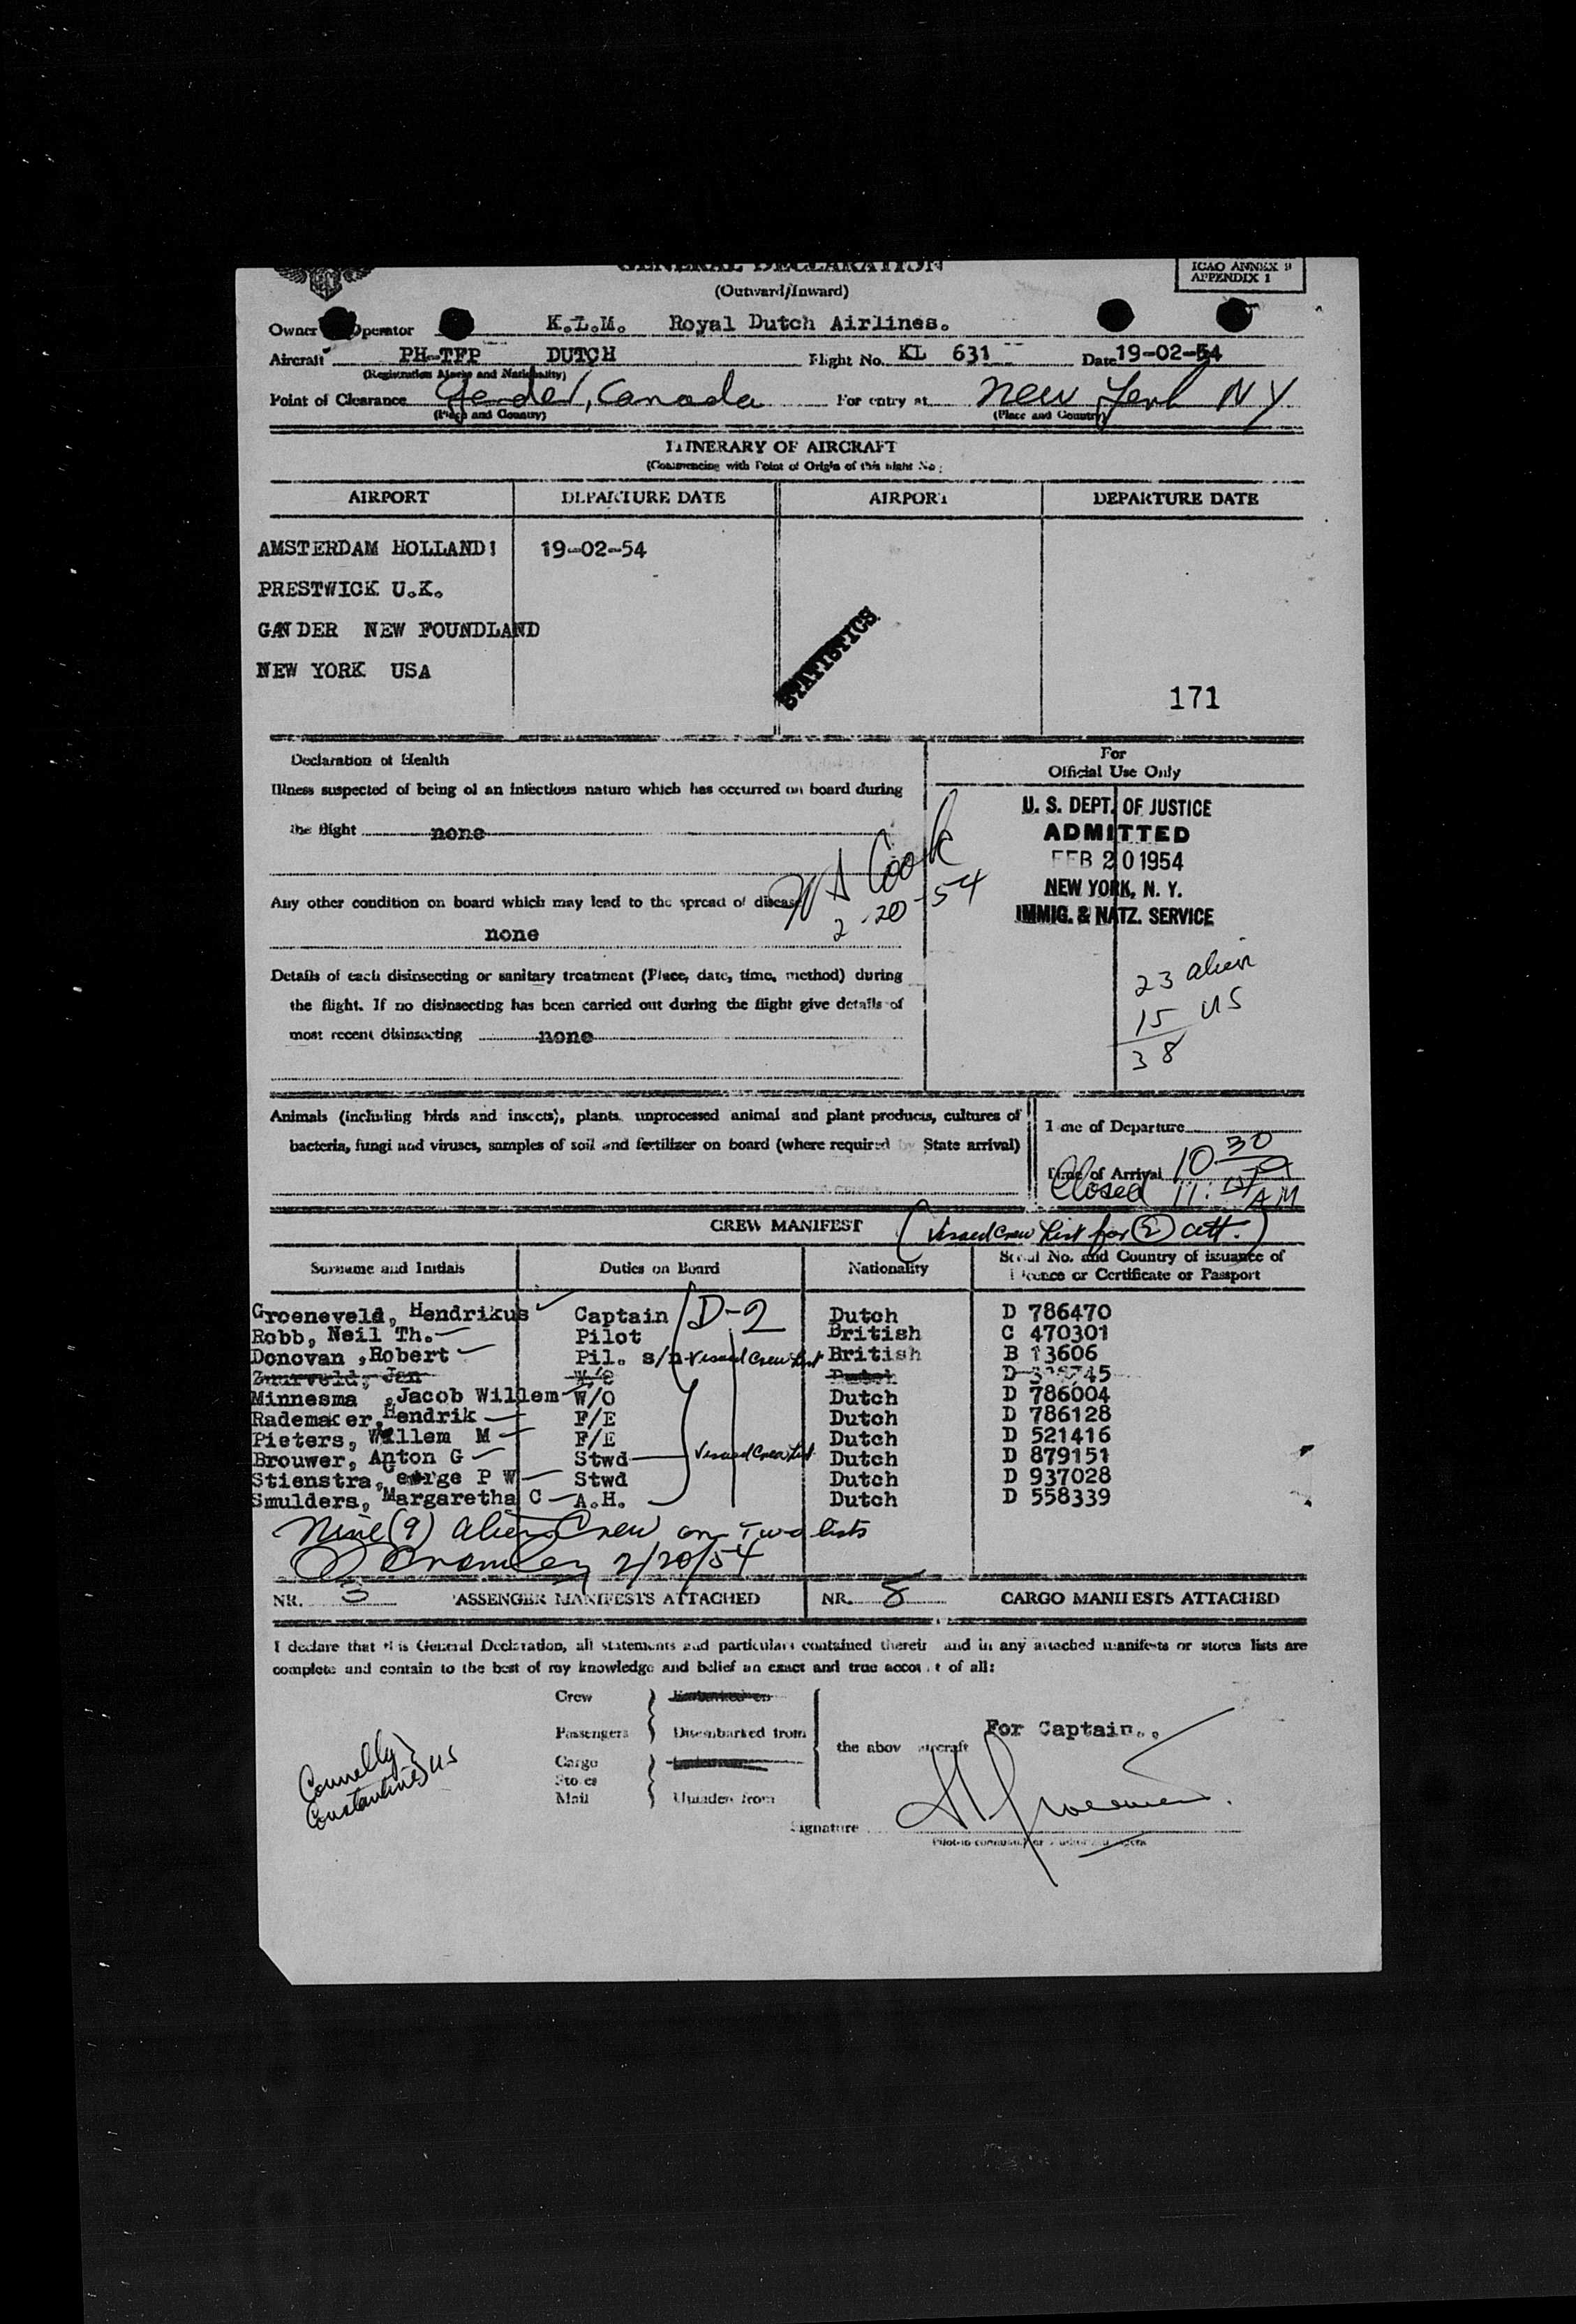 GENERAL DECLARATION
(Outward/Inward)
ICAO ANNEX 9
APPENDIX 1
Owner Operator K.L.M. Royal Dutch Airlines.
Aircraft PH-TFP DUTCH Flight No. KL 631 Date 19-02-54
(Registration Marks and Nationality)
Point of Clearance Gander, Canada For entry at New York NY
(Place and Country) (Place and Country)
ITINERARY OF AIRCRAFT
(Commencing with Point of Origin of this flight No.
AIRPORT DEPARTURE DATE AIRPORT DEPARTURE DATE
AMSTERDAM HOLLAND! 19-02-54
PRESTWICK U.K.
GANDER NEW FOUNDLAND
NEW YORK USA
STATISTICS
171
Declaration of Health
Illness suspected of being of an infectious nature which has occurred on board during
the flight none
Any other condition on board which may lead to the spread of disease
none
Cook
2-20-54
Details of each disinsecting or sanitary treatment (Place, date, time, method) during
the flight. If no disinsecting has been carried out during the flight give details of
most recent disinsecting none
For
Official Use Only
U. S. DEPT. OF JUSTICE
ADMITTED
FEB 20 1954
NEW YORK, N. Y.
IMMIG. & NATZ. SERVICE
23 alien
15 US
38
Animals (including birds and insects), plants, unprocessed animal and plant products, cultures of
bacteria, fungi and viruses, samples of soil and fertilizer on board (where required by State arrival)
Time of Departure
Time of Arrival 10 30
Closed 11: AM
CREW MANIFEST (Visaed Crew List for (2) att.)
Surname and Initials Duties on Board Nationality Serial No. and Country of issuance of
Licence or Certificate or Passport
Groeneveld, Hendrikus Captain D-2 Dutch D 786470
Robb, Neil Th. Pilot British C 470301
Donovan ,Robert Pil. s/n Visaed Crew List British B 13606
Zuurveld, Jan W/O Dutch D 745
Minnesma ,Jacob Willem W/O Dutch D 786004
Rademaker, Hendrik F/E Dutch D 786128
Pieters, Willem M F/E Dutch D 521416
Brouwer, Anton G Stwd Visaed Crew List Dutch D 879151
Stienstra, George P W Stwd Dutch D 937028
Smulders, Margaretha C A.H. Dutch D 558339
Nine (9) alien Crew on Two lists
2/20/54
NR. 3 PASSENGER MANIFESTS ATTACHED NR. 8 CARGO MANIFESTS ATTACHED
I declare that this General Declaration, all statements and particulars contained therein and in any attached manifests or stores lists are
complete and contain to the best of my knowledge and belief an exact and true account of all:
Crew Embarked on
Passengers Disembarked from
Cargo
Stores
Mail Unladen from
the above aircraft
For Captain..
Connelly
Constantine US
Signature
Pilot-in-command or